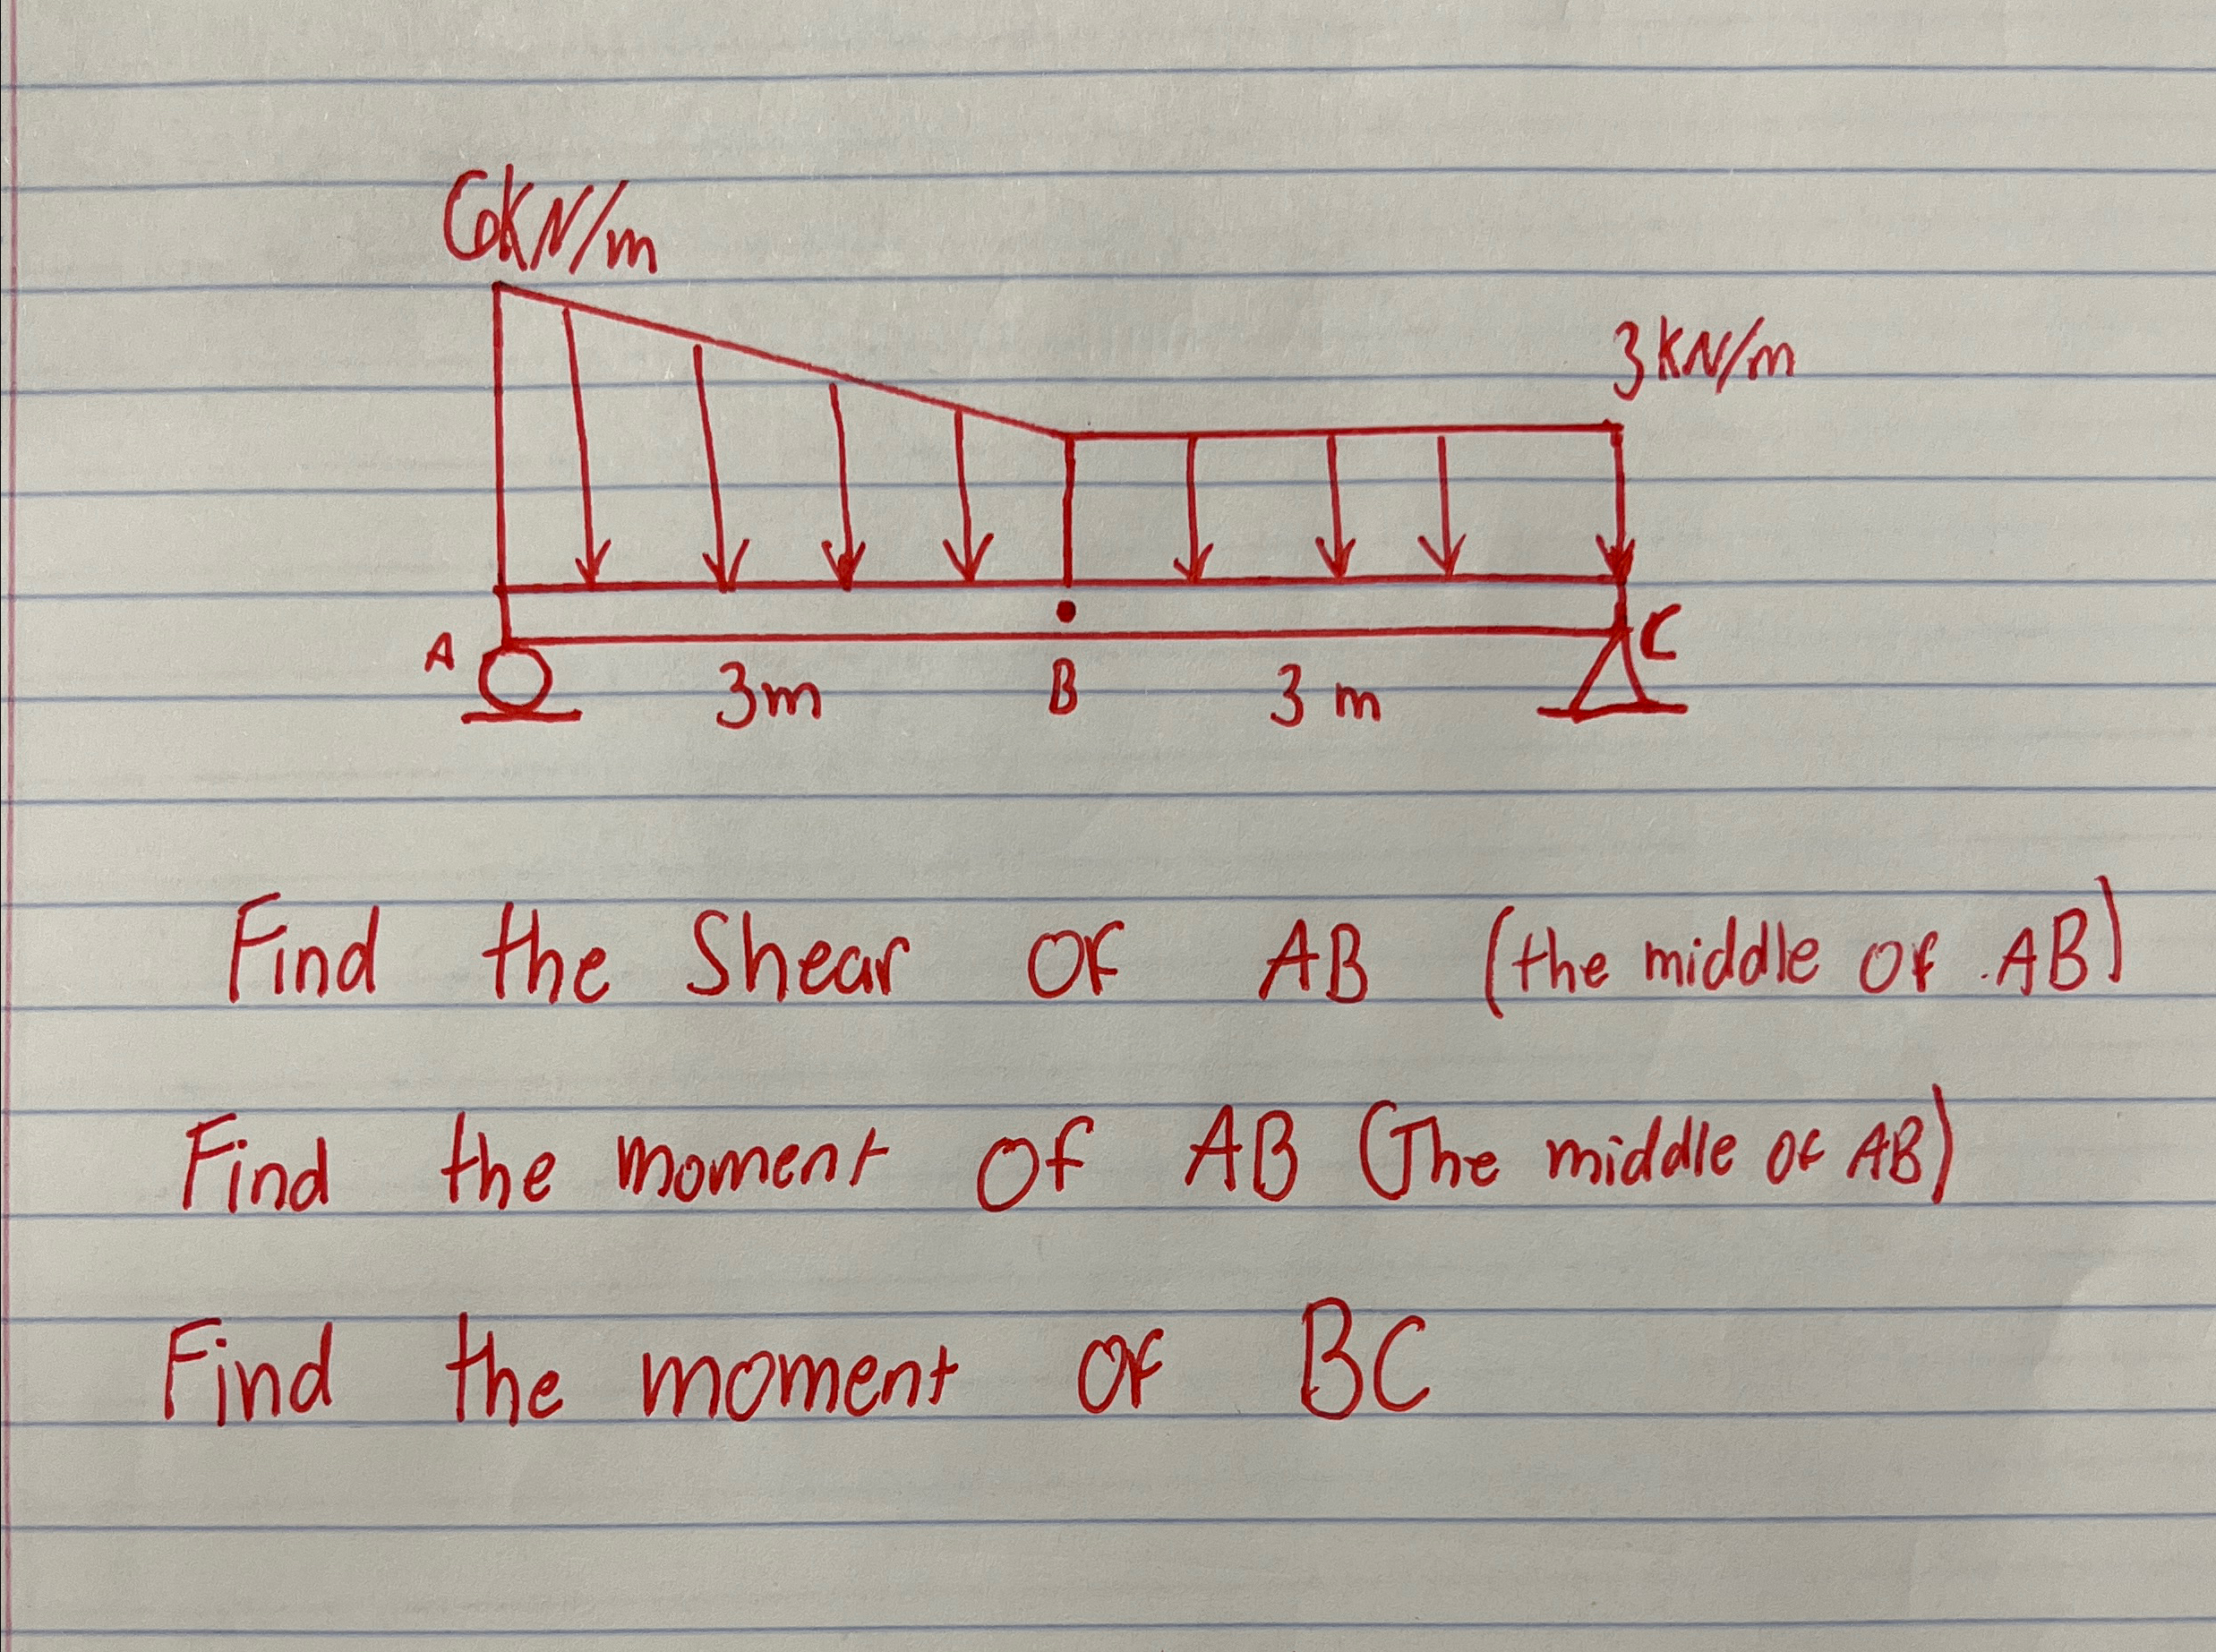 6kN/m
3kN/m
A
C
3m
B
3 m
Find the Shear of AB (the middle of AB)
Find the moment of AB (The middle of AB)
Find the moment of BC